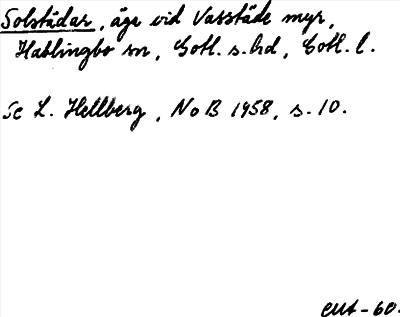 Solstädar, äga vid Vasstäde myr,
Hablingbo sn, Gotl. s. hd, Gotl. l.
Se L. Hellberg, NoB 1958, s. 10.
-60.